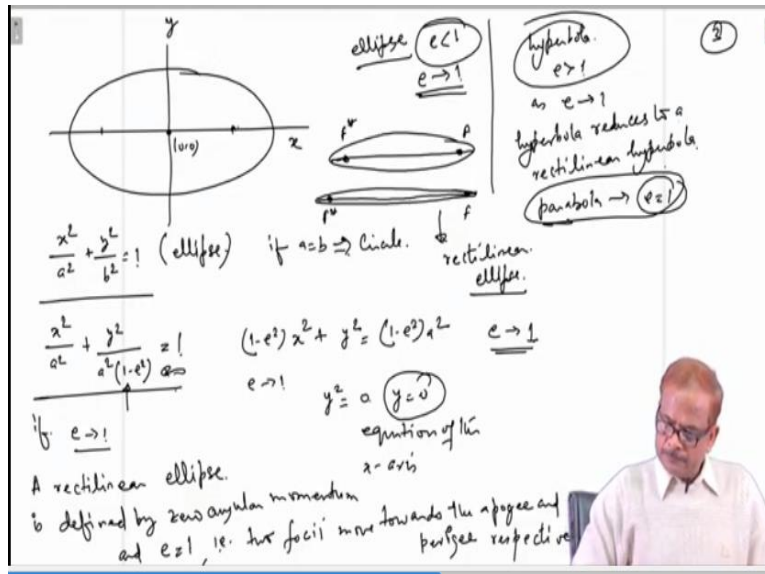 y
x
(0,0)
ellipse e<1
e→1
F* F
F* F
rectilinear
ellipse.
hyperbola.
e>1
as e→1
hyperbola reduces to a
rectilinear hyperbola
parabola → e=1
3
x²/a² + y²/b² = 1 (ellipse) if a=b ⇒ Circle.
x²/a² + y²/a²(1-e²) = 1 (1-e²)x² + y² = (1-e²)a² e→1
e→1
y² = 0 y=0
equation of the
x-axis
if e→1
A rectilinear ellipse.
is defined by zero angular momentum
and e=1, i.e. two focii move towards the apogee and
perigee respective